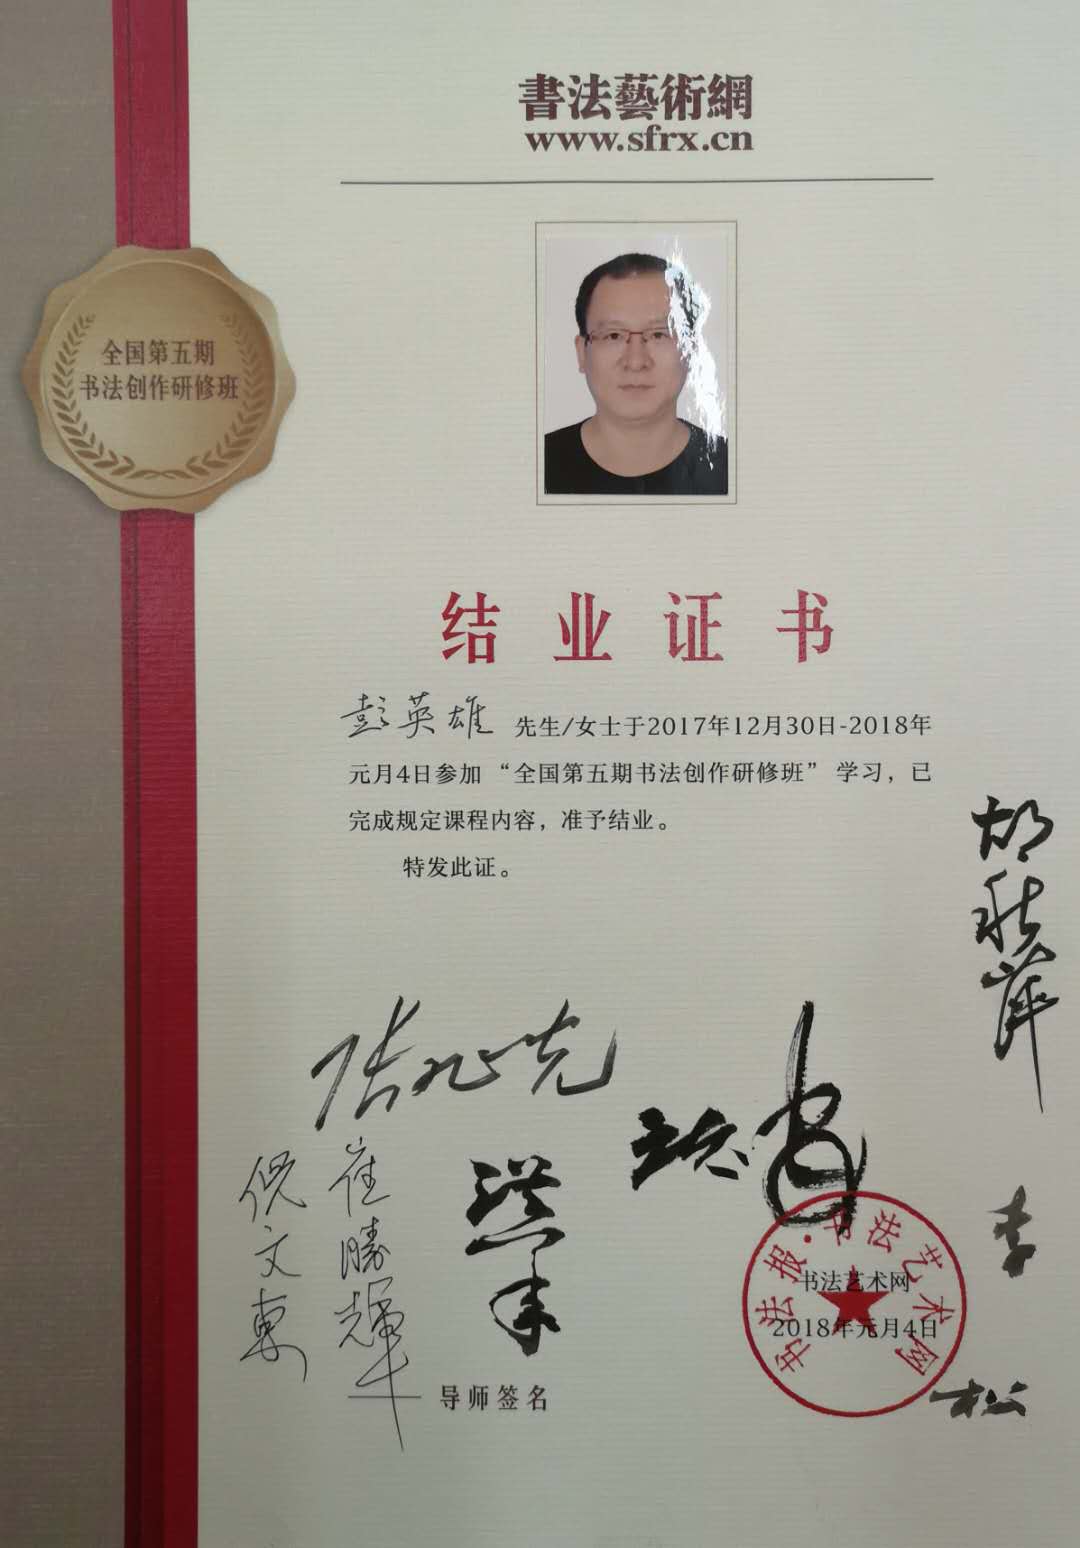 書法藝術網
www.sfrx.cn
全国第五期
书法创作研修班
结业证书
彭英雄 先生/女士于2017年12月30日-2018年
元月4日参加“全国第五期书法创作研修班”学习，已
完成规定课程内容，准予结业。
特发此证。
倪文東
崔勝輝
洪亮
李松
书法报·书法艺术网
书法艺术网
2018年元月4日
导师签名